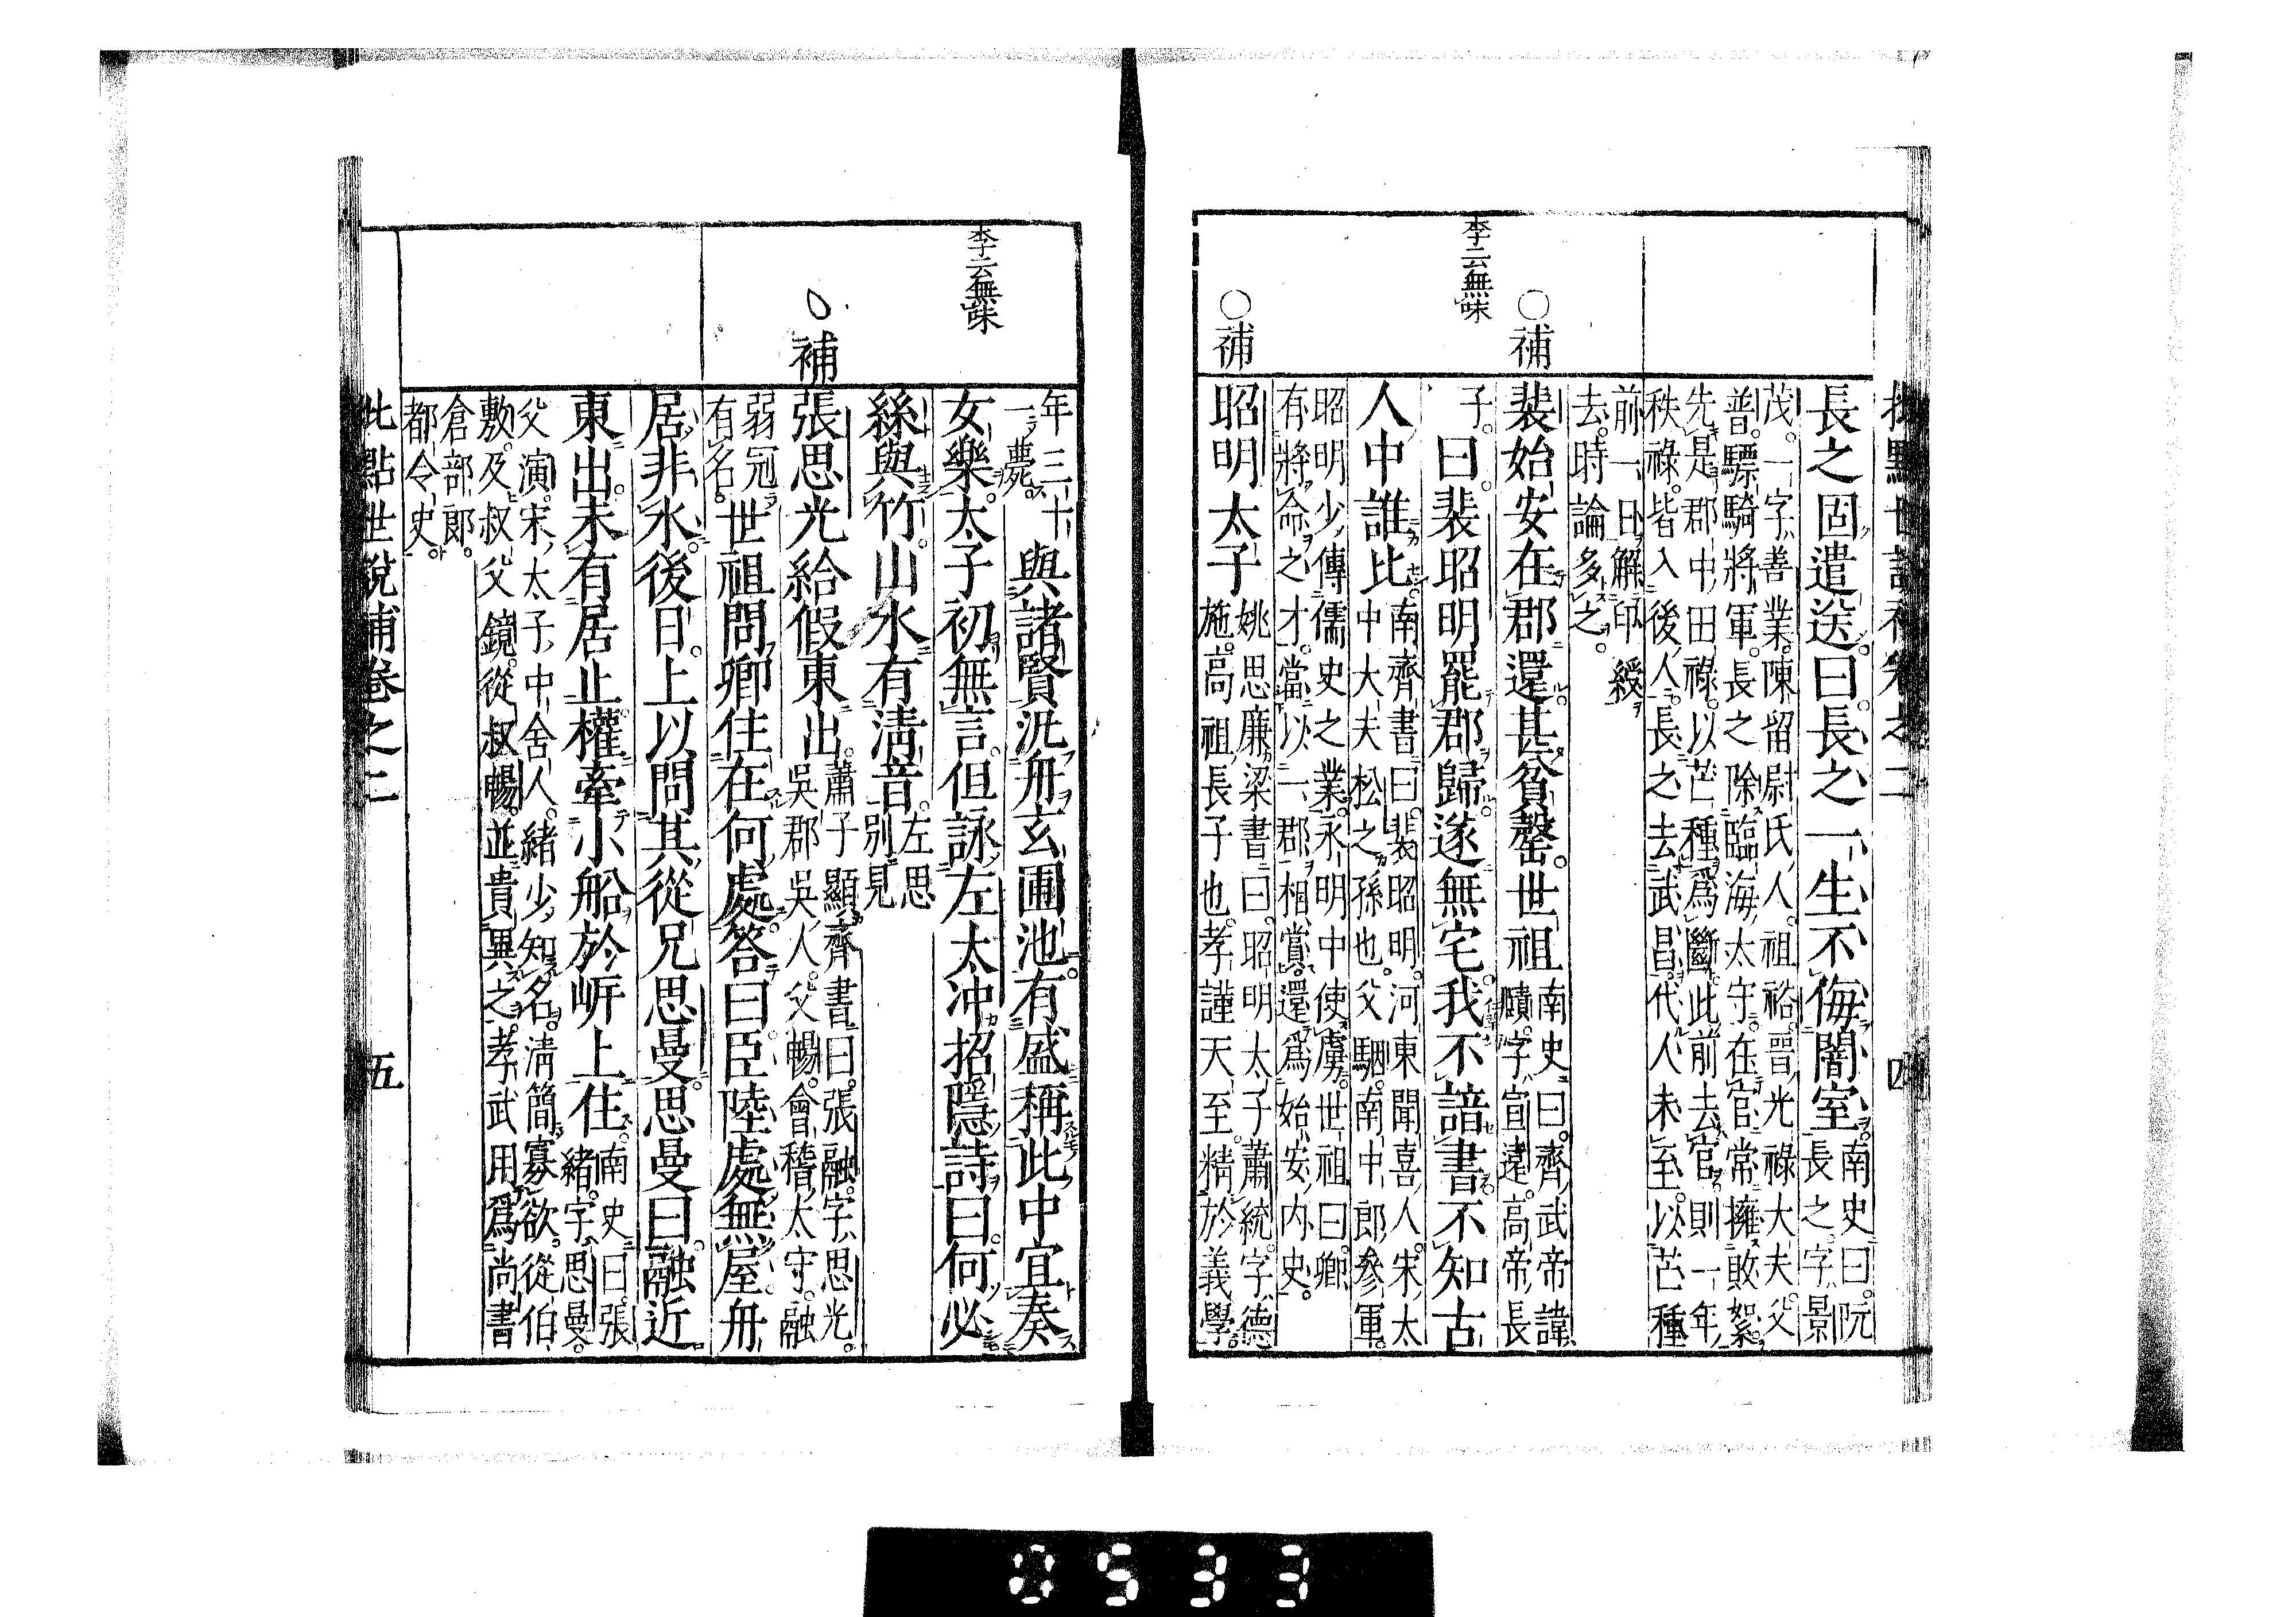 批點世說補卷之二 四
長之固遣送。曰。長之一生不侮闇室。
南史曰。阮
長之。字景
茂。一字善業。陳留尉氏人。祖裕。晉光祿大夫。父
普。驃騎將軍。長之除臨海太守。在官常擁敗絮。
先是郡中田祿。以芒種爲斷。此前去官。則一年
秩祿。皆入後人。長之去武昌。代人未至。以芒種
前一日解印綬
去。時論多之。
李云無味
○補
裴始安在郡還。甚貧罄。世祖
南史曰。齊武帝諱
賾。字宣遠。高帝長
子。
曰。裴昭明罷郡歸。遂無宅。我不諳書。不知古
人中誰比。
南齊書曰。裴昭明。河東聞喜人。宋太
中大夫松之孫也。父駰。南中郎參軍。
昭明少傳儒史之業。永明中使虜。世祖曰。卿
有將命之才。當以一郡相賞。還爲始安內史。
○補
昭明太子
姚思廉梁書曰。昭明太子蕭統。字德
施。高祖長子也。孝謹天至。精於義學。
年三十
一薨。
與諸賢汎舟玄圃池。有盛稱此中宜奏
李云無味
女樂。太子初無言。但詠左太沖招隱詩曰。何必
絲與竹。山水有清音。
左思
別見
○補
張思光給假東出。
蕭子顯齊書曰。張融。字思光。
吳郡吳人。父暢。會稽太守。融
弱冠
有名。
世祖問。卿住在何處。答曰。臣陸處無屋。舟
居非水。後日。上以問其從兄思曼。思曼曰。融近
東出。未有居止。權牽小船於岸上住。
南史曰。張
緒。字思曼。
父演。宋太子中舍人。緒少知名。清簡寡欲。從伯
敷。及叔父鏡。從叔暢。並貴異之。孝武用爲尚書
倉部郎。
都令史。
批點世說補卷之二 五
0533